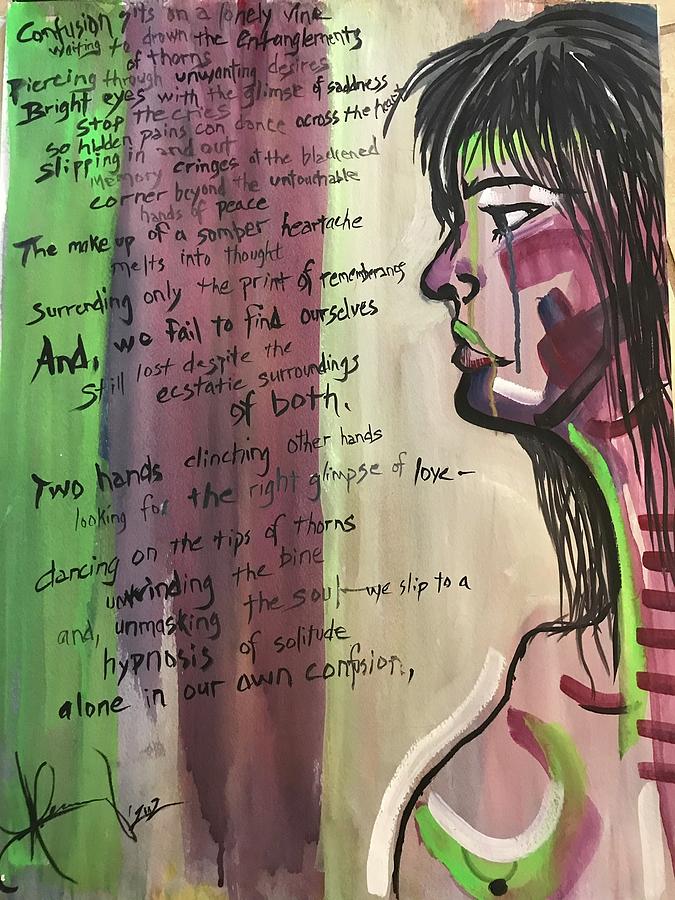 Confusion sits on a lonely vine
waiting to drown the entanglements
of thorns
Piercing through unwanting desires
Bright eyes with the glimse of saddness
Stop the cries across the heart
so hidden pains can dance
slipping in and out
Memory cringes at the blackened
corner beyond the untouchable
hands of peace
The make up of a somber heartache
melts into thought
Surrending only the print of rememberange
And, we fail to find ourselves
Still lost despite the
ecstatic surroundings
of both.
Two hands clinching other hands
looking for the right glimpse of love –
dancing on the tips of thorns
unwinding the bine
and, unmasking the soul – we slip to a
hypnosis of solitude
alone in our own confusion,